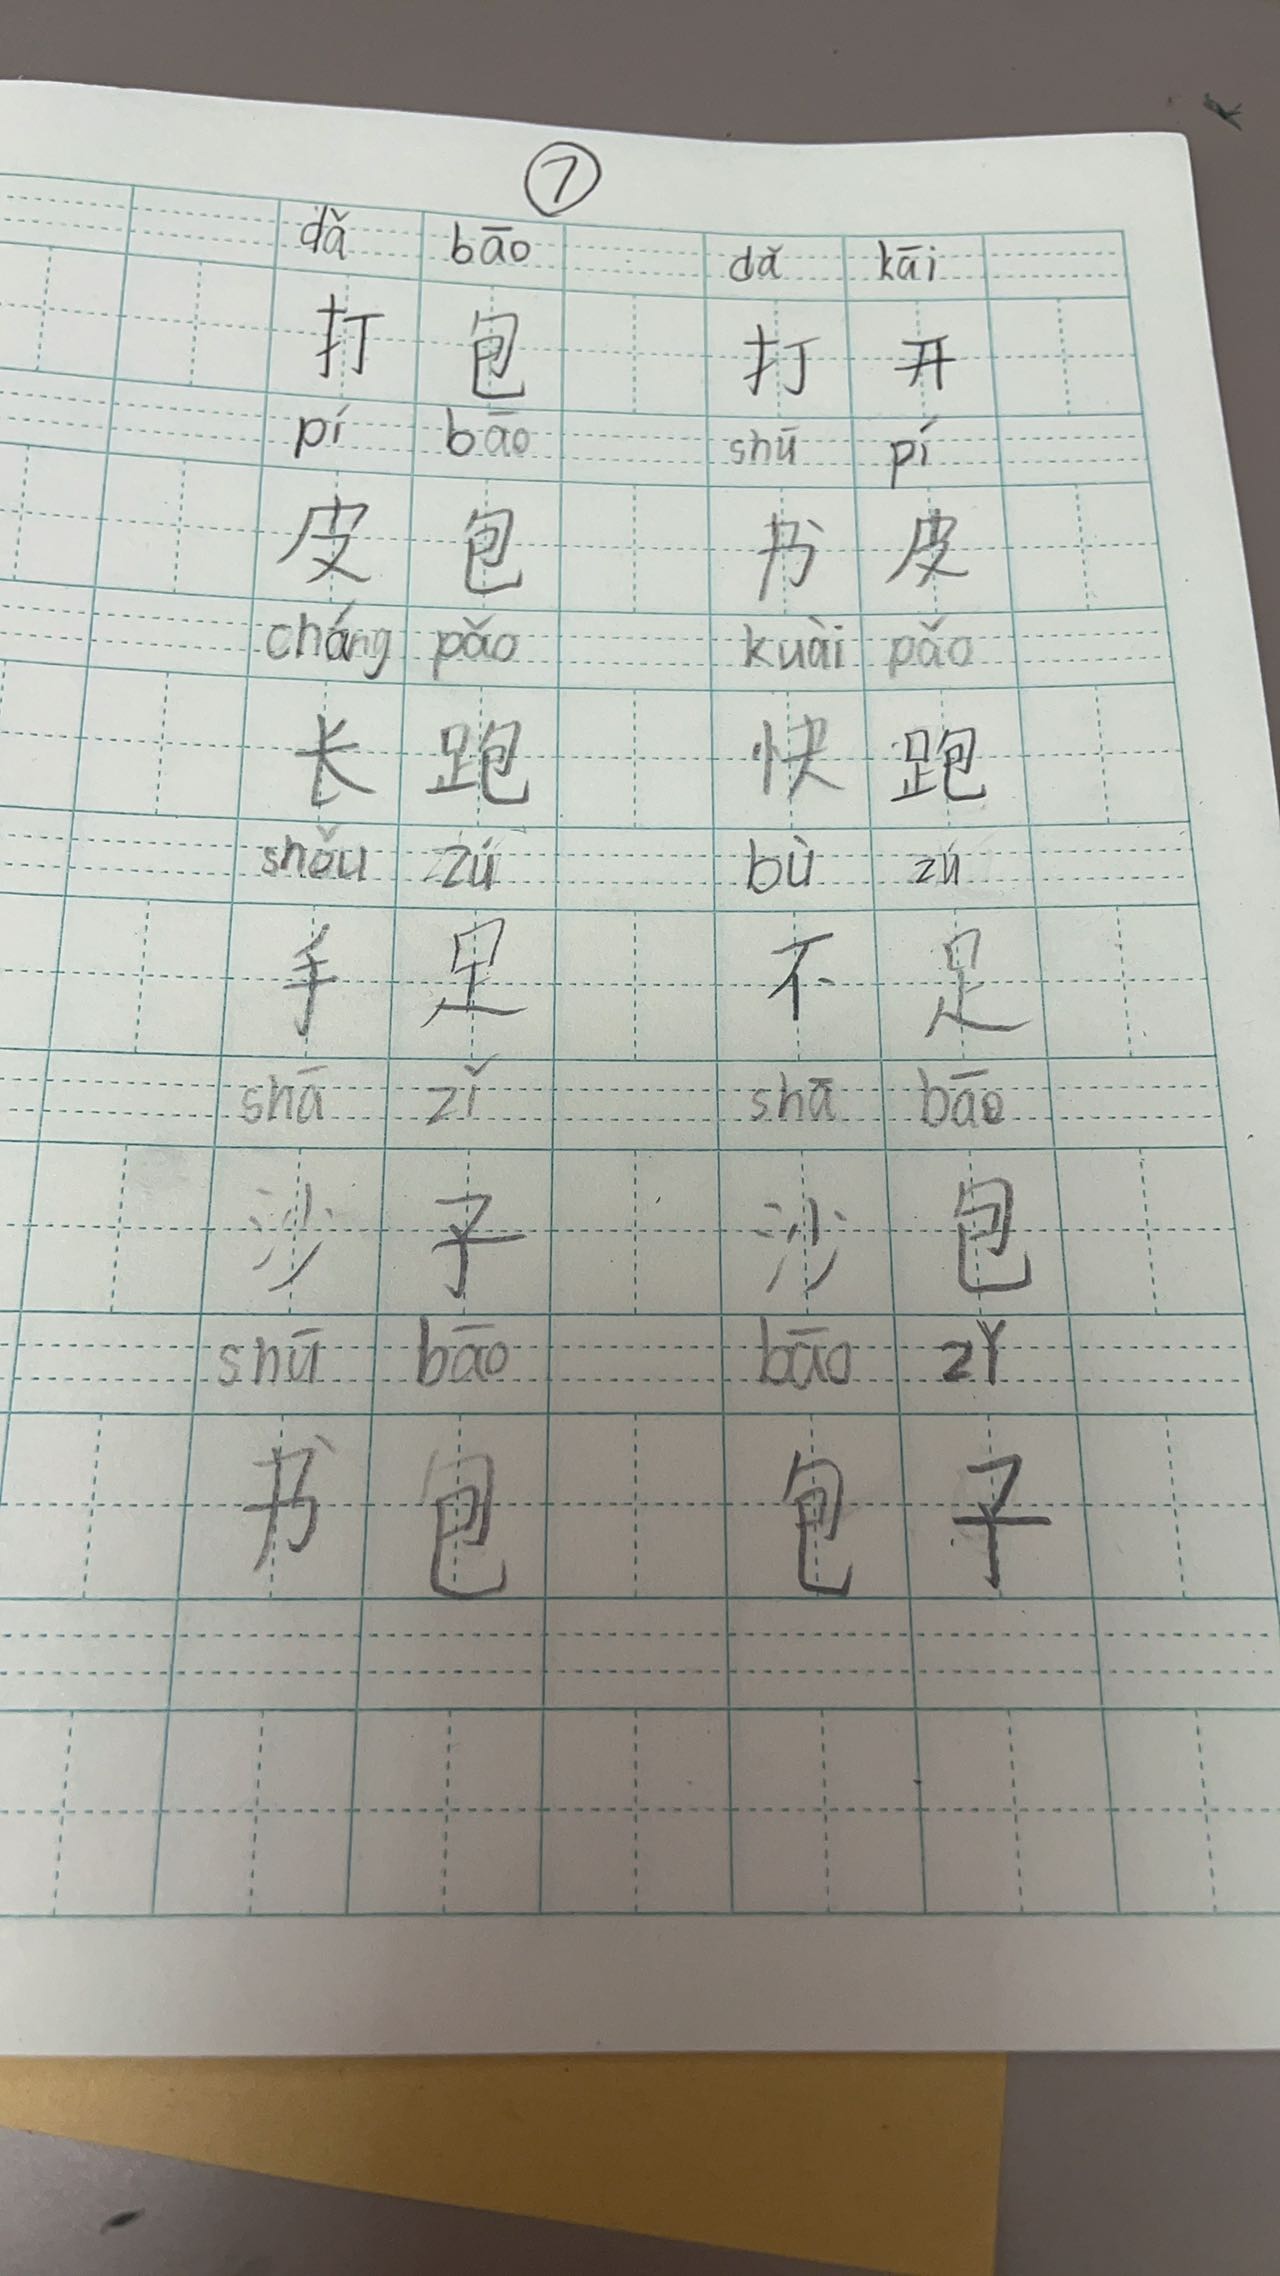 ⑦
dǎ bāo dǎ kāi
打包 打开
pí bāo shū pí
皮包 书皮
cháng pǎo kuài pǎo
长跑 快跑
shǒu zú bù zú
手足 不足
shā zǐ shā bāo
沙子 沙包
shū bāo bāo zǐ
书包 包子